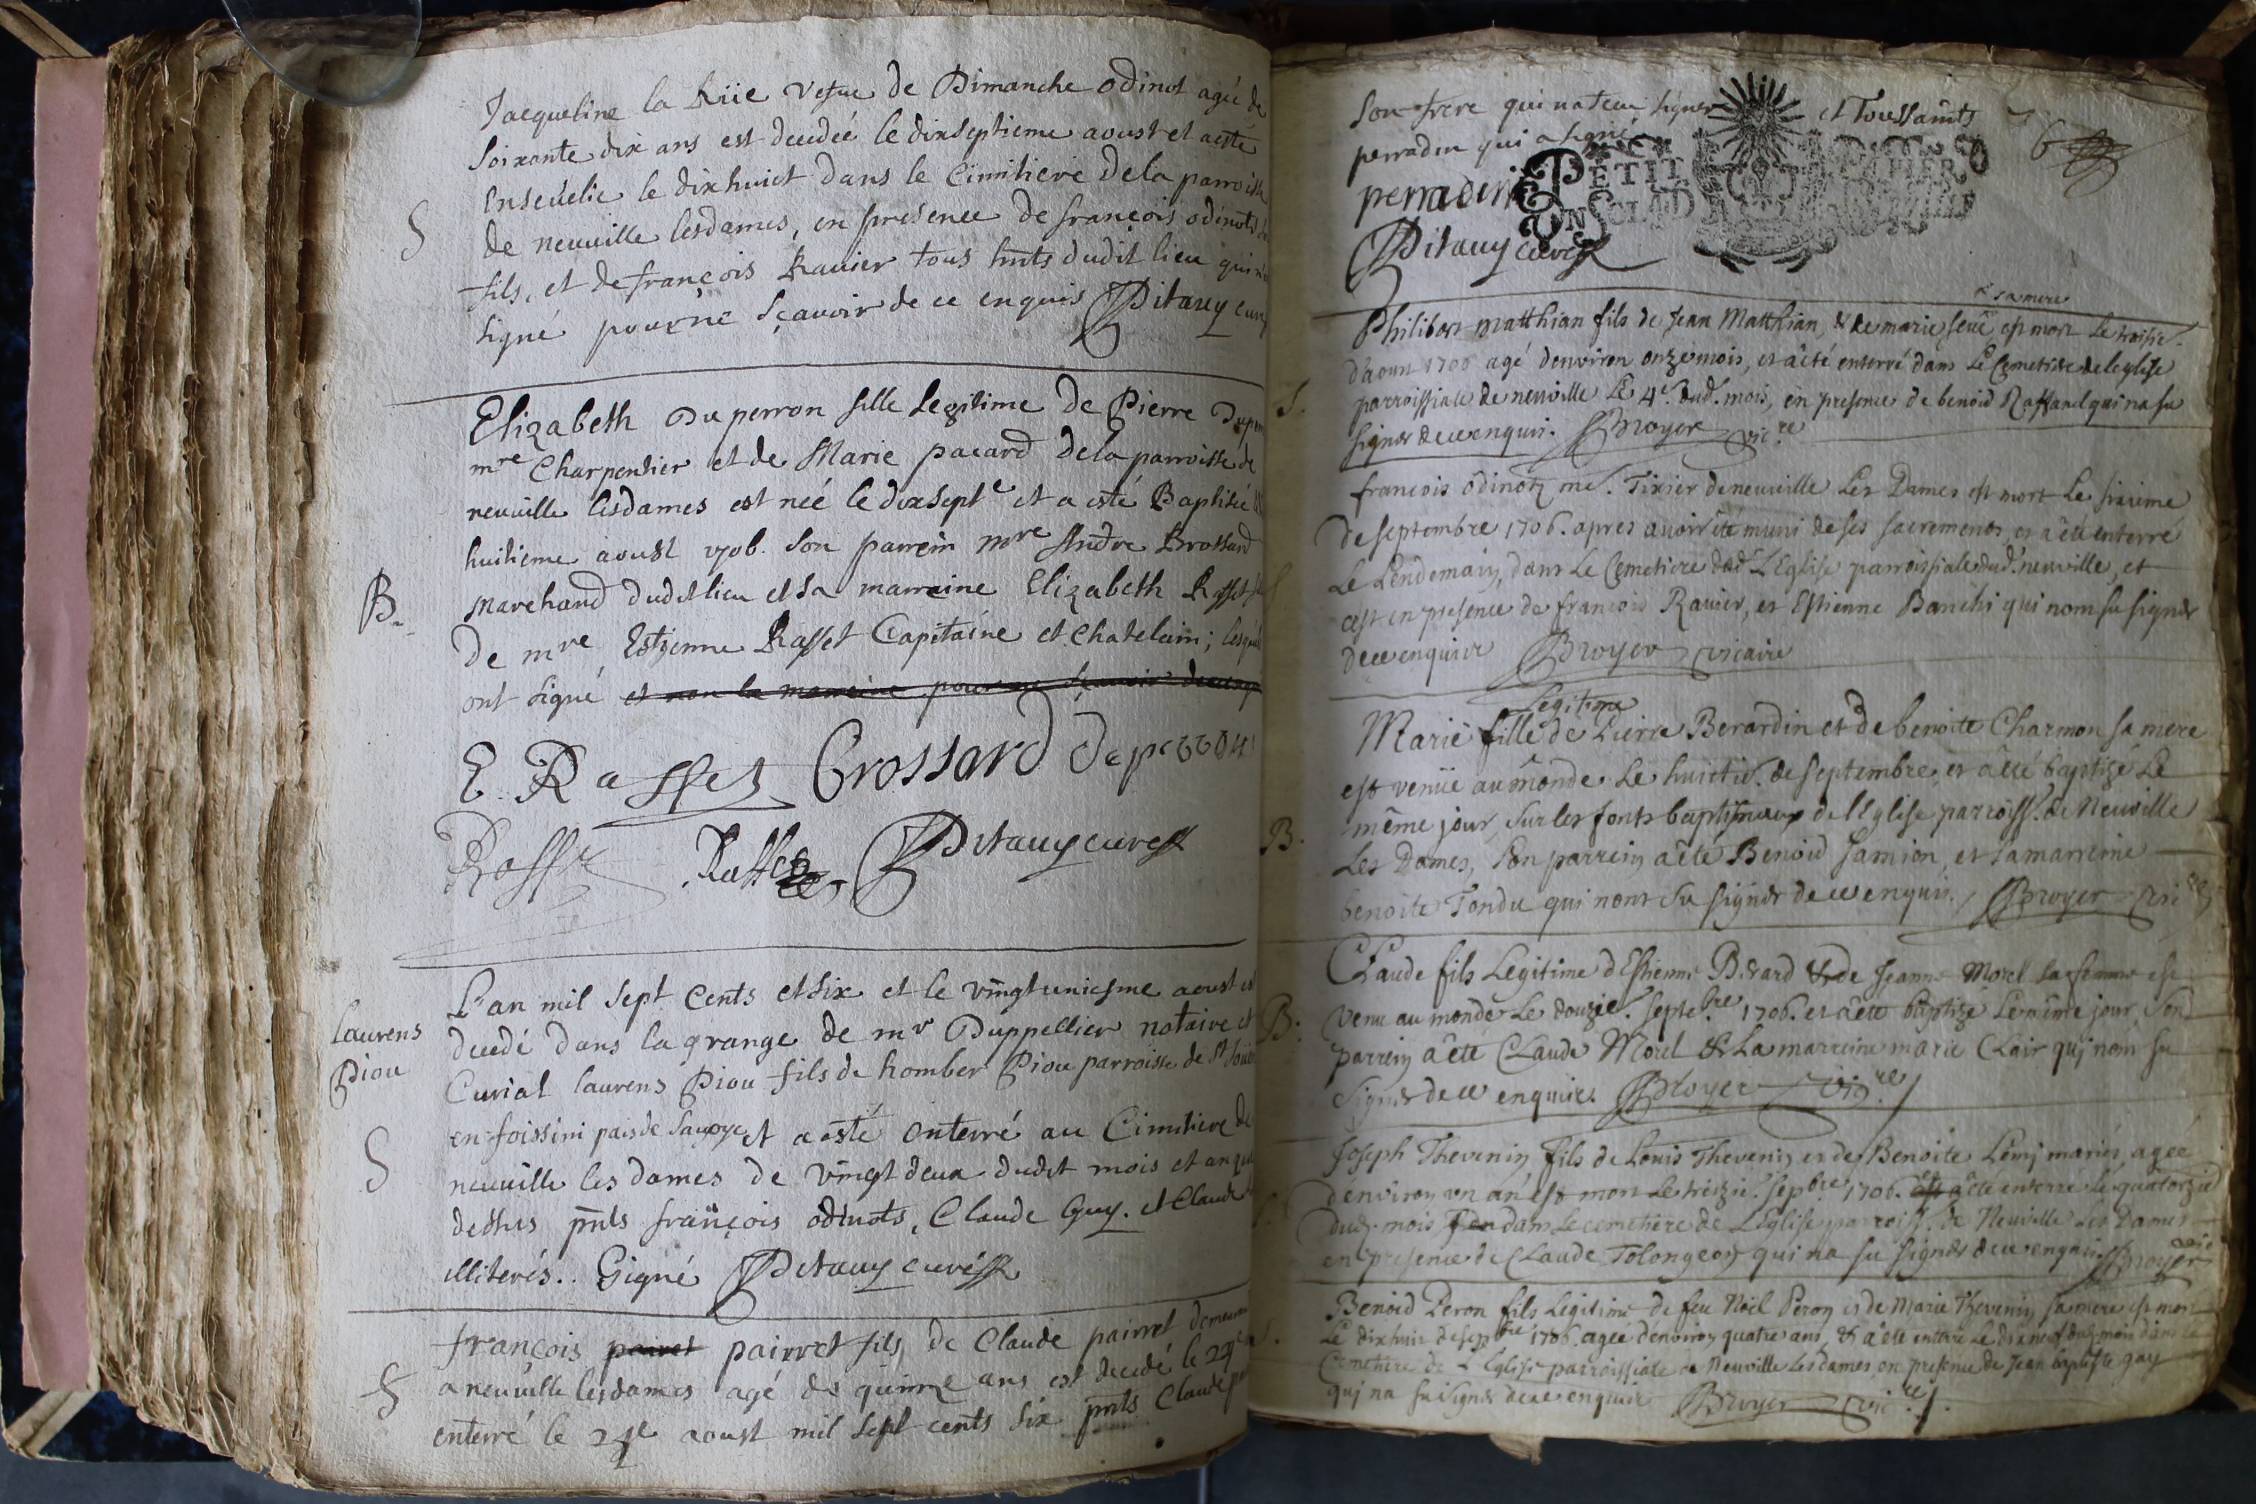 Jacqueline la Riie vefue de Dimanche odinot agée de
soixante dix ans est decedeé le dixseptieme aoust et a esté
Ensevelie le dix huict dans le Cimitiere dela parroisse
S
de neuuille lesdames, en presence de françois odinots
fils, et de françois Rauier tous hnts dudit lieu qui
signé pour ne sçavoir de ce enquis Ditauy curé
Elizabeth Du perron fille Legitime de Pierre Dup
mre Charpentier et de Marie pacard dela parroisse de
neuuille lesdames est neé le dix septe et a esté Baptiseé
huitieme aoust 1706. son parrein mre Andre Brossard
B.
Marchand dudit lieu et sa marraine Elizabeth Rasset
De mre Estienne Rasset Capitaine et chatelain; lesquel
ont signé et non la marraine pour ne sçavoir
E Rasset Brossard duperron
Rasset Ditauy curé
L'an mil sept Cents et six et le vingt uniesme aoust est
Laurens
decedé dans la grange de mr Duppellier notaire et
Piou
Curial laurens Piou fils de homber Piou parroisse de St
en foissini pais de Sauoye et a esté enterré au Cimitiere de
S
neuuille les dames de vingt deux dudit mois et an que
dessus pnts françois odinots, Claude Guy. et Claude
illiterés.. Signé Ditauy curé
françois pairet pairret fils de Claude pairret demeurant
S
a neuuille lesdames agé de quinze ans est decedé le
enterré le aoust mil sept cents six pnts Claude
son frere qui na sceu signer et Toussaints
6
perradin qui a signé
perradin
PETIT PAPIER
UN SOL
Ditauy curé
& sa mere
Philibert Matthian fils de Jean Matthian, & de marie seué est mort Le troisie.
d'aoust 1706 agé denviron onze mois, et a été enterré dans Le Cemetiere de leglise
S.
parroissiale de neuville Le 4e. dud. mois, en presence de benoid Raffard qui na su
signer de ce enquis. Broyer vicre
francois odinotz me. Tixier de neuuille Les Dames est mort Le sixieme
de septembre 1706. apres avoir été muni de ses sacrements, et a été enterré
Le Lendemain, dans Le Cemetiere de L'Eglise parroissiale dud. neuville, et
c'est en presence de francois Rauier, et Estienne Banchi qui nont su signer
de ce enquis Broyer vicaire
Legitime
Marie fille de Pierre Berardin et de benoite Charmon sa mere
est venüe au monde Le huictie. de septembre, et a été baptizé Le
même jour, sur les fonts baptismaux de l'Eglise parroiss. de Neuville
B.
Les Dames, son parrein a été Benoid Jamion, et sa marreine
benoite Tondu qui nont su signer de ce enquis. Broyer vicre
Claude fils Legitime d'Estienne Berard & de Jeanne Morel sa femme est
B.
venu au monde Le douzie. septebre 1706. et a été baptizé Le même jour, son
parrein a été Claude Morel & La marreine marie Clair qui nont su
signer de ce enquis. Broyer vicre
Joseph Thevenin, fils de Louis Thevenin et de Benoite Lémi mariés, agée
d'environ un an est mort Le treizie. sepbre 1706. est a été enterré Le quatorzie
dud. mois dans Le cemetiere de L'Eglise parroiss. de Neuville Les Dames
en presence de Claude Tolongeon qui na su signer de ce enquis. Broyer vic
Benoid Peron fils Legitime de feu Noël Peron et de Marie Thevenin sa mere est mort
Le dix huit de sepbre 1706. agée denviron quatre ans, & a été enterré Le dixneuf dud. mois dans le
Cemetiere de L'Eglise parroissiale de Neuville Les dames en presence de Jean baptiste gay
qui na su signer de ce enquis Broyer vicre